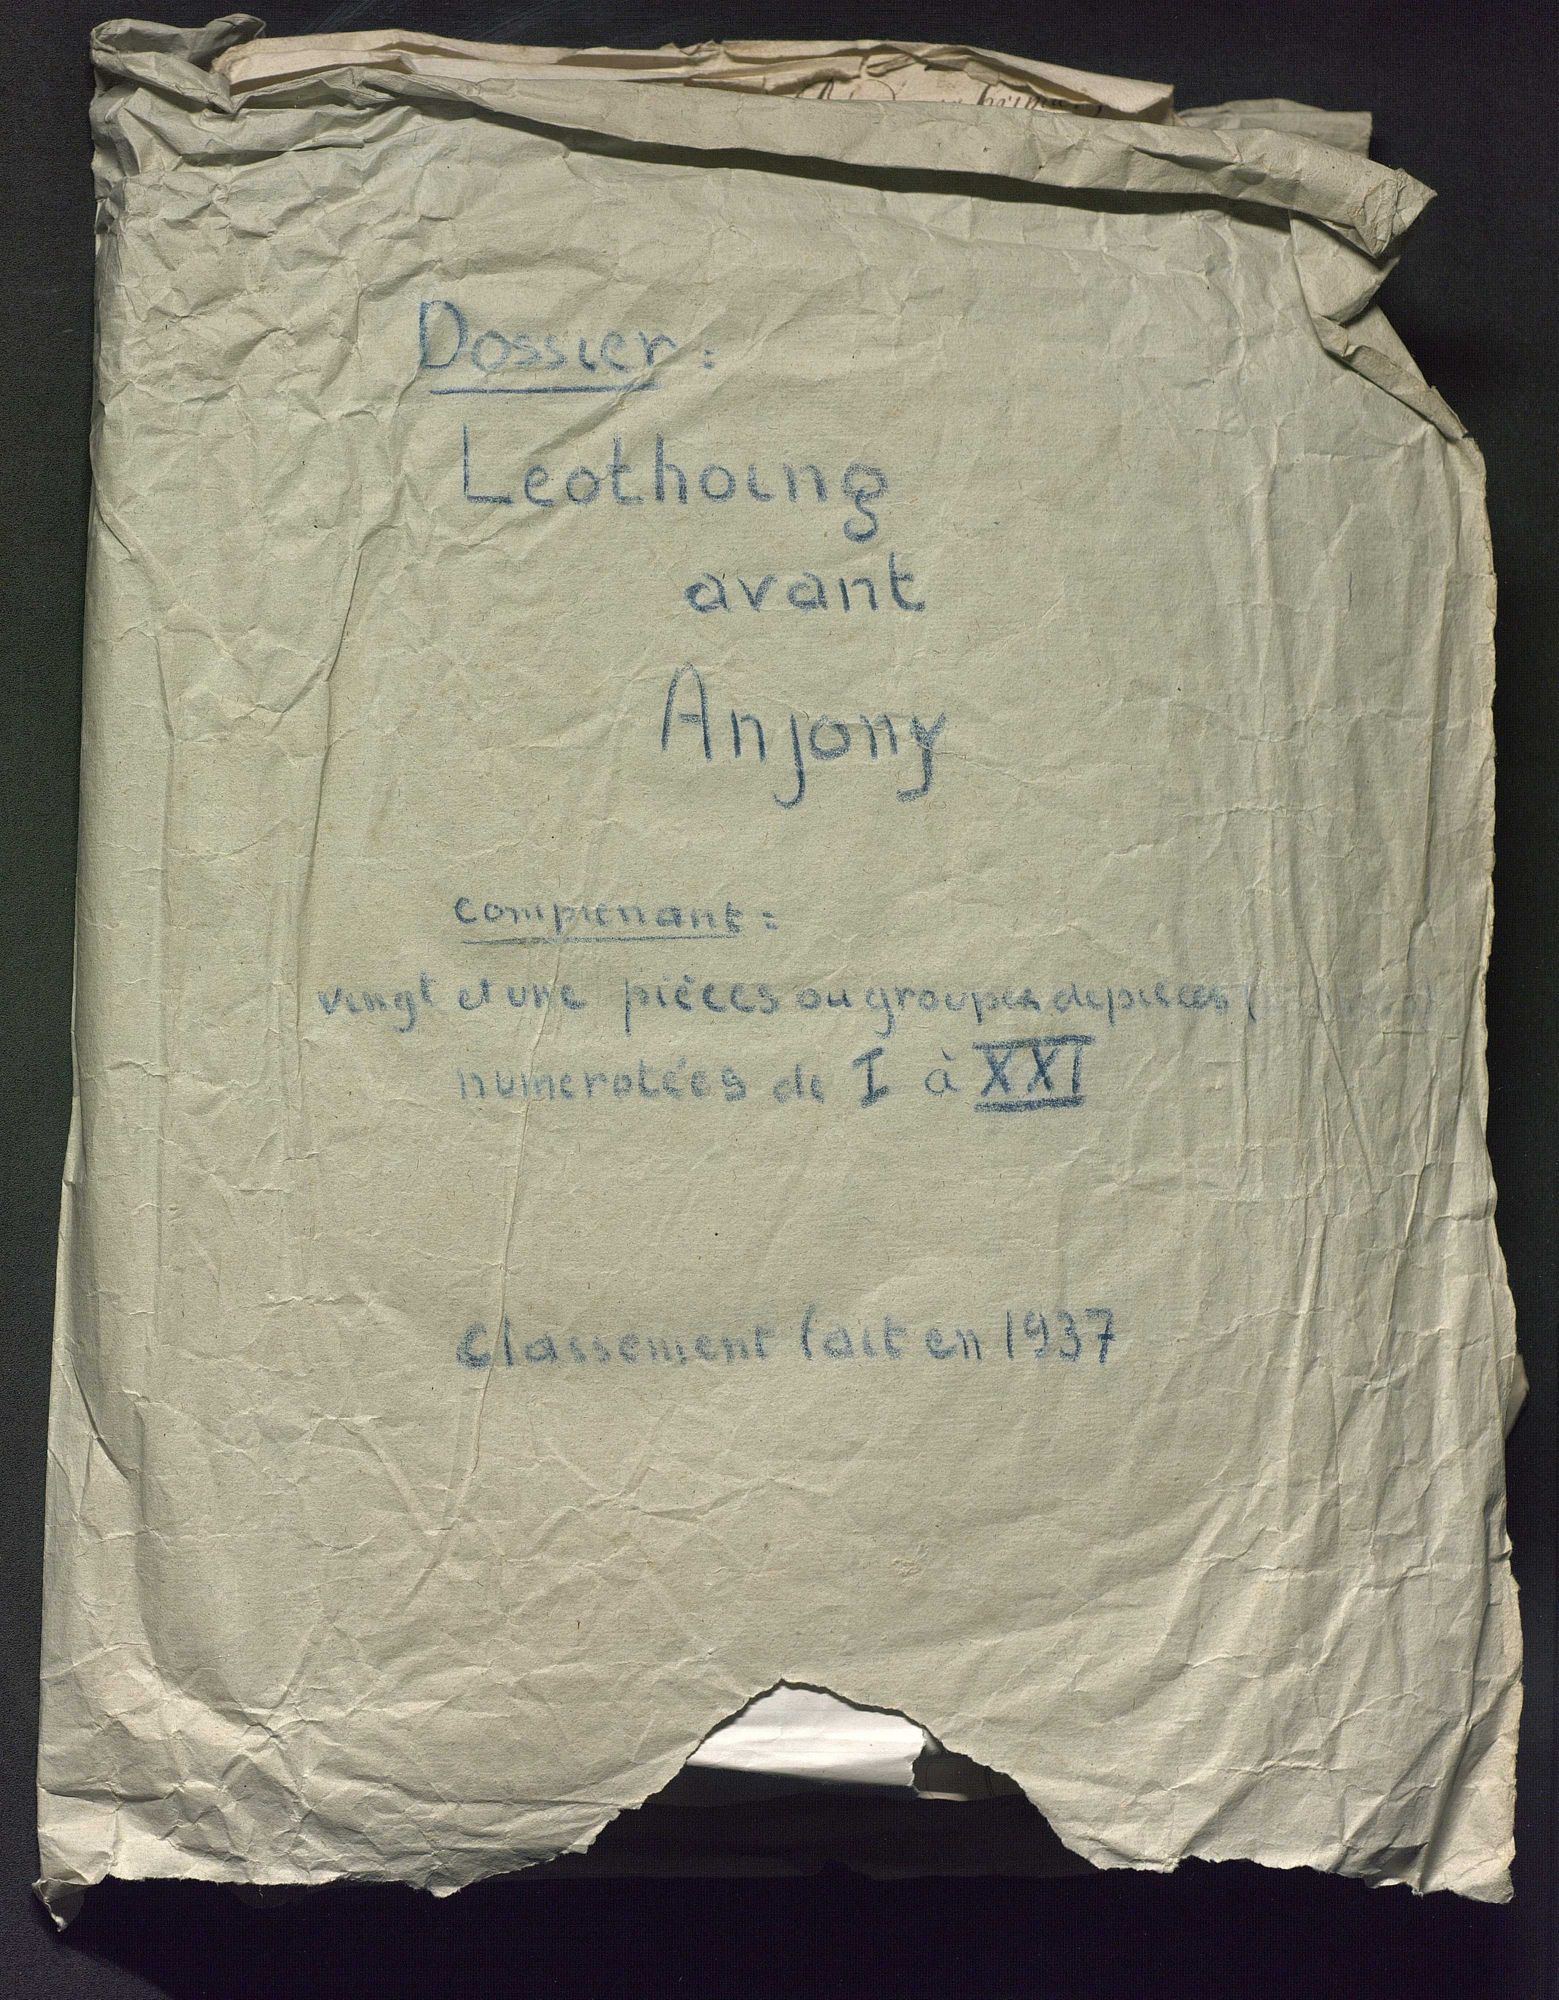 Dossier :
Leothoing
avant
Anjony
comprenant :
vingt et une pièces ou groupes de pièces (
numerotées de I à XXI
Classement fait en 1937